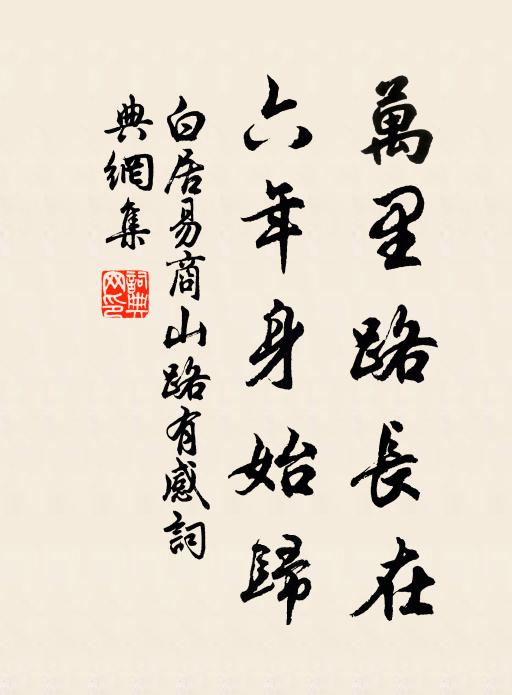 萬里路長在
六年身始歸
白居易商山路有感詞
典網集
詞典網印